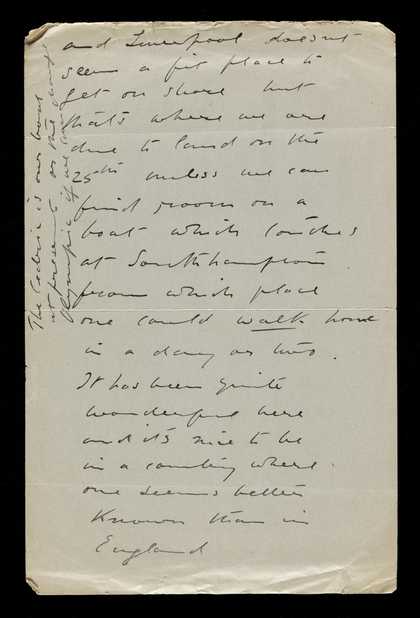 and Liverpool doesnt
seem a fit place to
get on shore but
thats where we are
due to land on the
25th unless we can
find room on a
boat which touches
at Southampton
from which place
one could walk home
in a day or two.
It has been quite
wonderful here
and it's nice to be
in a country where
one seems better
known than in
England
The Cedric is our boat
at present or the
Olympic if we can